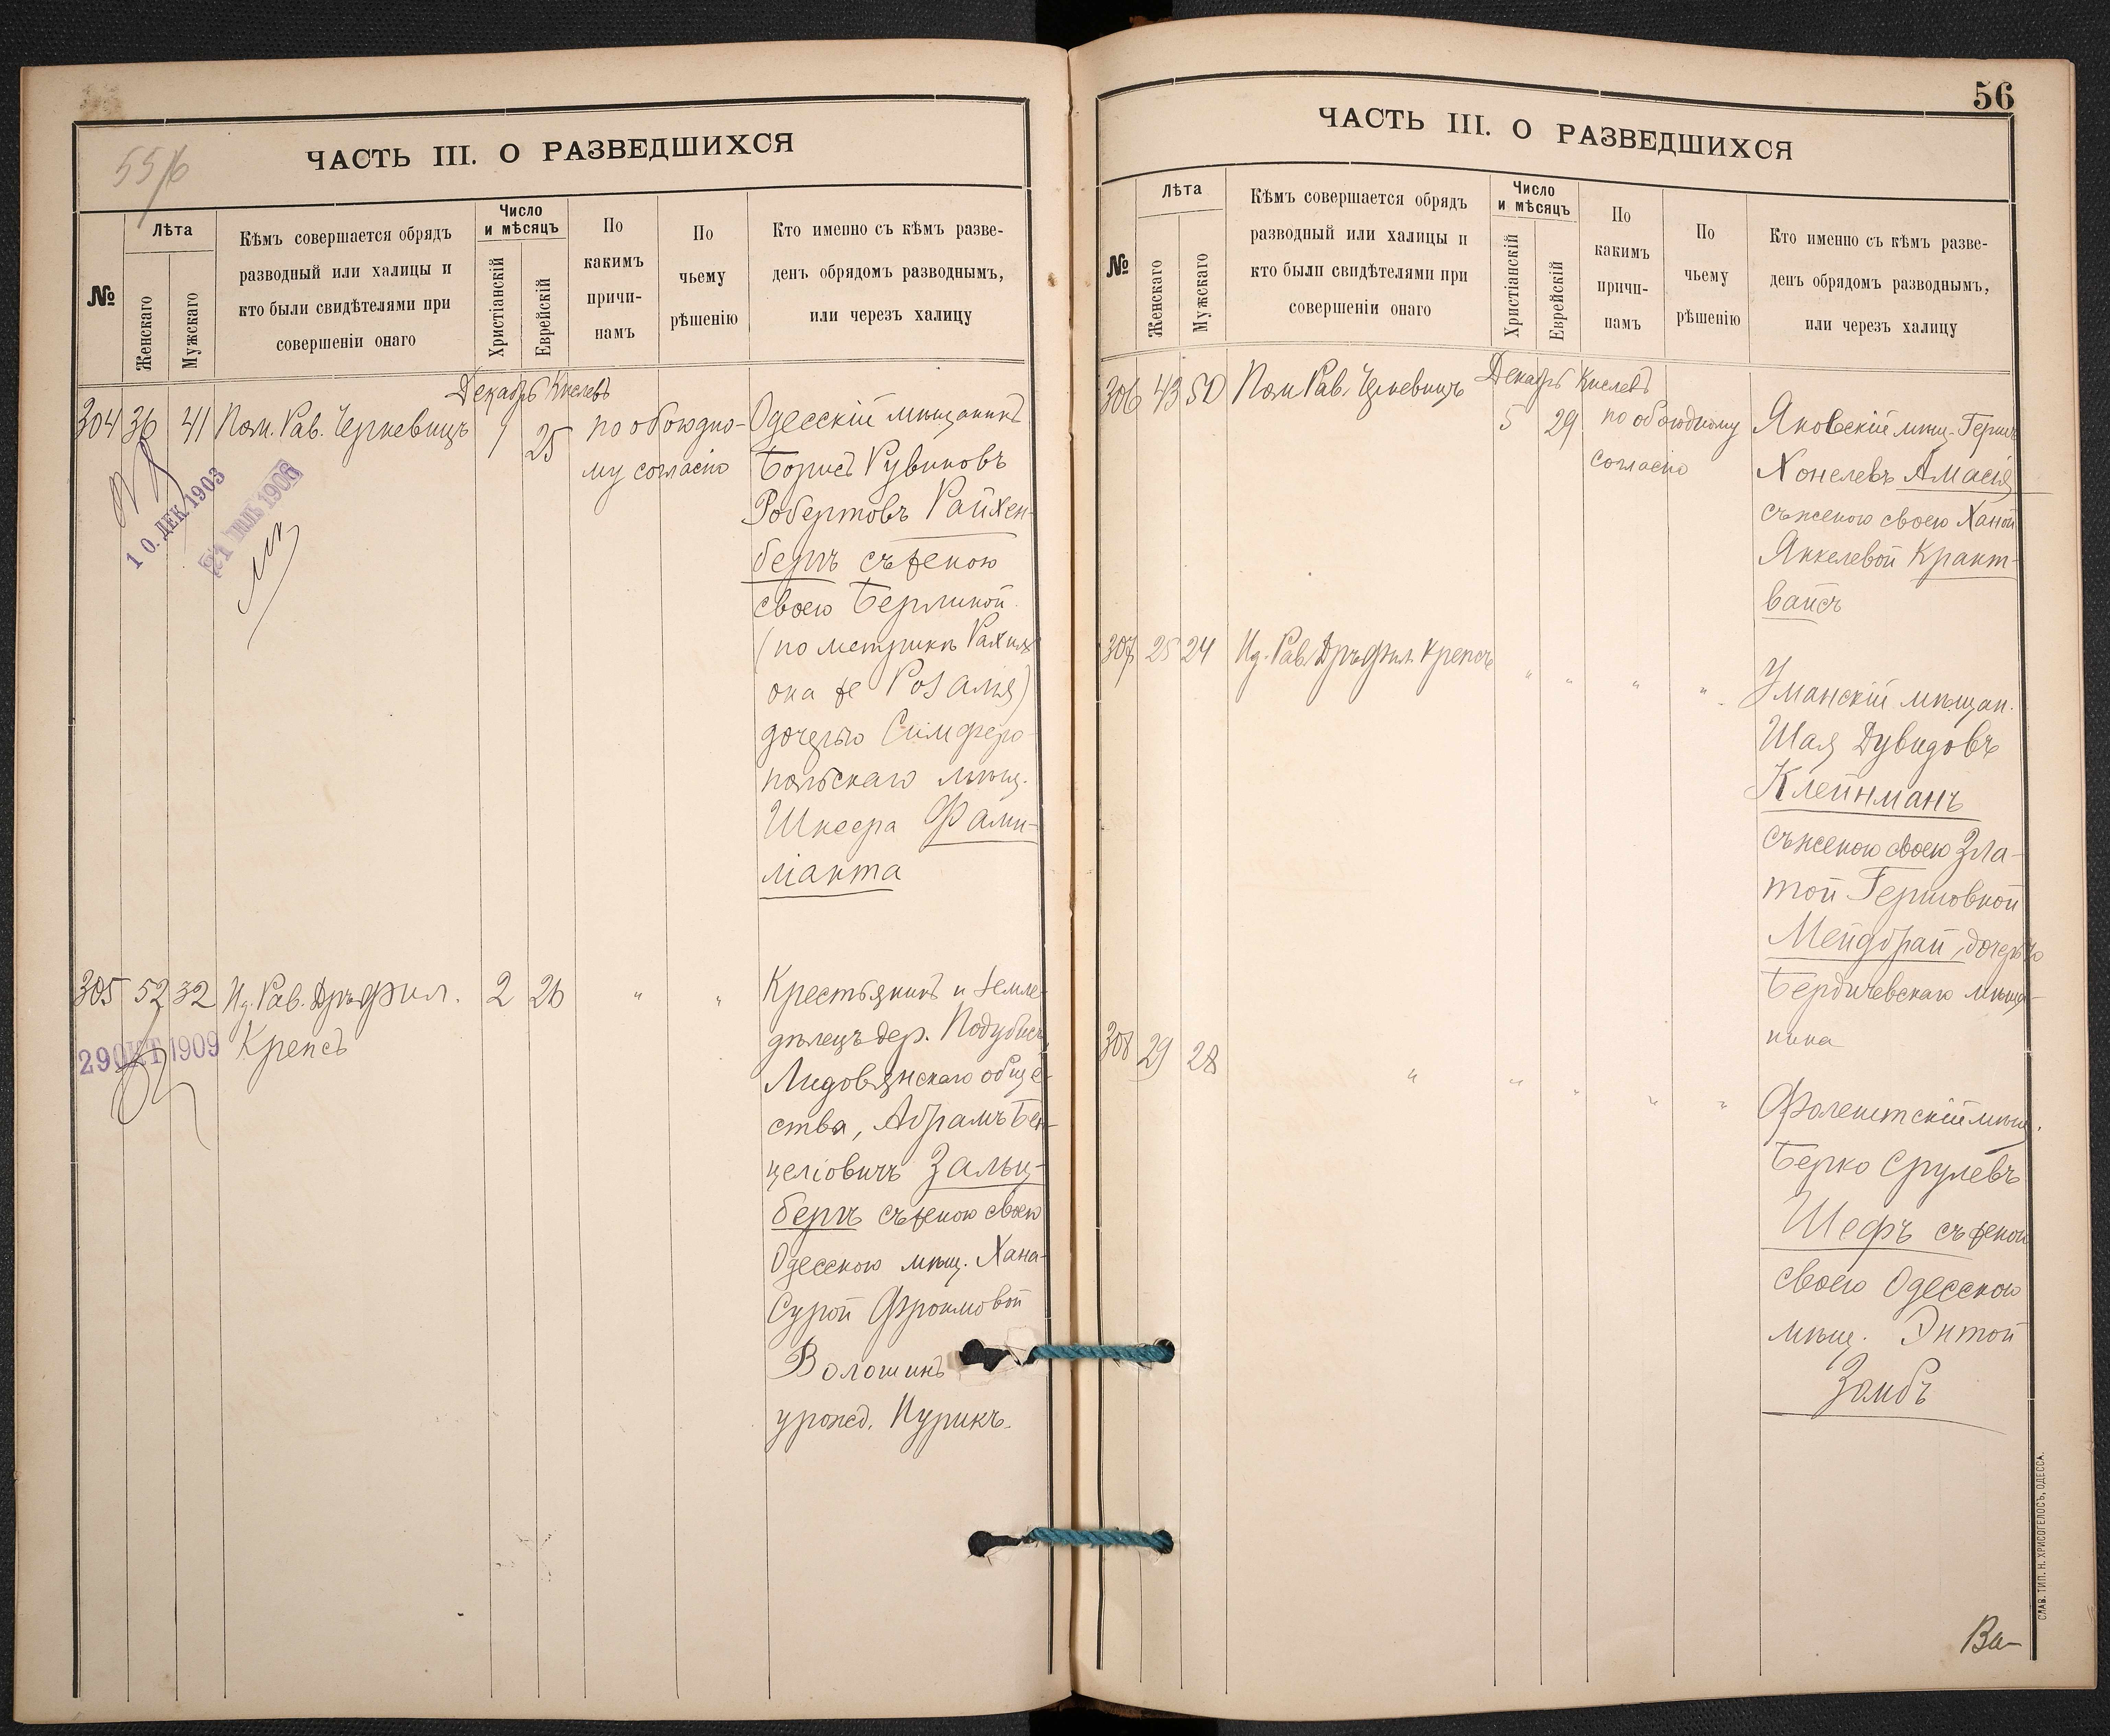 55/б
ЧАСТЬ III. О РАЗВЕДШИХСЯ
№
Лѣта
Женскаго
Мужскаго
Кѣмъ совершается обрядъ
разводный или халицы и
кто были свидѣтелями при
совершеніи онаго
Число
и мѣсяцъ
Христіанскій
Еврейскій
По
какимъ
причи-
намъ
По
чьему
рѣшенію
Кто именно съ кѣмъ разве-
денъ обрядомъ разводнымъ,
или через халицу
Декабрь Кислевъ
304 36 41 Пом. Рав. Черкевицъ 1 25 по обоюдно-
му согласію
10. ДЕК 1903
21 1906
Одесскій мѣщанинъ
Борисъ Рувиновъ
Робертовъ Райхен-
бергъ съ женою
своею Берминой
(по метрикѣ Рахиль
она же Розалія)
дочерью Симферо-
польскаго мѣщ.
Шнеера Фами-
ліанта
305 52 32 И. д. Рав. Дръ Фил. 2 26 " "
Крепсъ
29 ОКТ 1909
Крестьянинъ и земле-
дѣлецъ дер. Подубись
Лидовянскаго обще-
ства, Абрамъ Бен-
целіовичъ Зальц-
бергъ съ женою своею
Одесскою мѣщ. Хана-
Сурой Фроимовой
Волошинъ
урожд. Пурикъ.
56
ЧАСТЬ III. О РАЗВЕДШИХСЯ
№
Лѣта
Женскаго
Мужскаго
Кѣмъ совершается обрядъ
разводный или халицы и
кто были свидѣтелями при
совершеніи онаго
Число
и мѣсяцъ
Христіанскій
Еврейскій
По
какимъ
причи-
намъ
По
чьему
рѣшенію
Кто именно съ кѣмъ разве-
денъ обрядомъ разводнымъ,
или через халицу
Декабрь Кислевъ
306 43 50 Пом Рав. Черкевицъ 5 29 по обоюдному
согласію
Яновскій мѣщ. Герш
Хонелевъ Амасія
съ женою своею Ханой
Янкелевой Крант-
вайсъ
307 25 24 И. д. Рав. Дръ Фил. Крепсъ " " " "
Уманскій мѣщан.
Шая Дувидовъ
Клейнманъ
съ женою своею Зла-
той Гершовной
Мейдбрай, дочерью
Бердичевскаго мѣща-
нина
308 29 28 " " " " "
Фалештскій мѣщ.
Берко Срулевъ
Шефъ съ женою
своею Одесскою
мѣщ. Энтой
Зомбъ
Ва-
СЛАВ. ТИП. Н. ХРИСОГЕЛОСЪ, ОДЕССА.